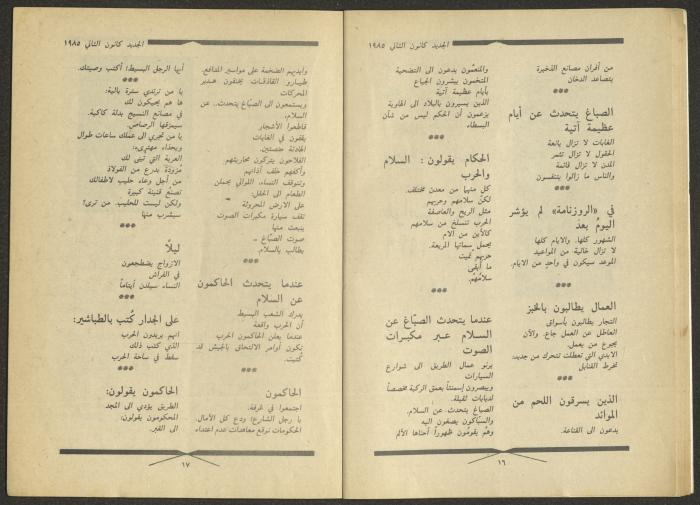 الجديد كانون الثاني ١٩٨٥
من أفران مصانع الذخيرة
يتصاعد الدخان
***
الصباغ يتحدث عن أيام
عظيمة آتية
الغابات لا تزال يانعة
الحقول لا تزال تثمر
المدن لا تزال قائمة
والناس ما زالوا يتنفسون
***
في «الروزنامة» لم يؤشر
اليومُ بعد
الشهور كلها، والايام كلها
لا تزال خالية من المواعيد
الموعد سيكون في واحدٍ من الايام.
***
العمال يطالبون بالخبز
التجار يطالبون بأسواق
العاطل عن العمل جاع. والآن
يجوع من يعمل.
الايدي التي تعطلت تتحرك من جديد:
تخرط القنابل
***
الذين يسرقون اللحم من
الموائد
يدعون الى القناعة.
والمنعّمون يدعون الى التضحية
المتخمون يبشرون الجياع
بأيام عظيمة آتية
الذين يسيرون بالبلاد الى الهاوية
يزعمون أن الحكم ليس من شأن
البسطاء
***
الحكام يقولون: السلام
والحرب
كل منهما من معدن مختلف.
لكنّ سلامهم وحربهم
مثل الريح والعاصفة
الحرب تنسلخ من سلامهم
كالابن من الام
يحمل سماتها المريعة.
حربهم تميت
ما أبقى
سلامُهم.
***
عندما يتحدث الصبّاغ عن
السلام عبر مكبرات
الصوت
يرنو عمال الطريق الى شوارع
السيارات
ويبصرون إسمنتاً بعمق الركبة مخصصاً
لدبابات ثقيلة.
الصباغ يتحدث عن السلام.
والسبّاكون يصغون اليه
وهم يقومون ظهوراً أحناها الألم
١٦
الجديد كانون الثاني ١٩٨٥
وأيديهم الضخمة على مواسير المدافع.
طيارو القاذفات يخنقون هدير
المحركات
ويستمعون الى الصبّاغ يتحدث.. عن
السلام.
قاطعوا الأشجار
يقفون في الغابات
الهادئة منصتين.
الفلاحون يتركون محاريثهم.
وأكفهم خلف آذانهم
وتتوقف النساء اللواتي يحملن
الطعام الى الحقل.
على الارض المحروثة
تقف سيارة مكبرات الصوت
ينبعث منها
صوت الصبّاغ -
يطالب بالسلام
***
عندما يتحدث الحاكمون
عن السلام
يدرك الشعب البسيط
أن الحرب واقعة
عندما يعلن الحاكمون الحرب
تكون أوامر الالتحاق بالجيش قد
كُتبت.
***
الحاكمون
اجتمعوا في غرفة.
يا رجل الشارع: ودع كل الآمال.
الحكومات توقع معاهدات عدم اعتداء
أيها الرجل البسيط: أكتب وصيتك.
***
يا من ترتدي سترة بالية:
ها هم يحيكون لك
في مصانع النسيج بدلة كاكية.
سيمزقها الرصاص.
يا من تجري الى عملك ساعات طوال
وبحذاء مهترىء:
العربة التي تبنى لك
مزودة بدرع من الفولاذ
من أجل وعاء حليب لاطفالك
تصنع قنينة كبيرة
ولكن ليست للحليب. من ترى؟
سيشرب منها
***
ليلاً
الازواج يضطجعون
في الفراش
النساء سيلدن أيتاماً
***
على الجدار كُتب بالطباشير:
انهم يريدون الحرب
الذي كتب ذلك
سقط في ساحة الحرب
***
الحاكمون يقولون:
الطريق يؤدي الى المجد
المحكومون يقولون:
الى القبر.
١٧